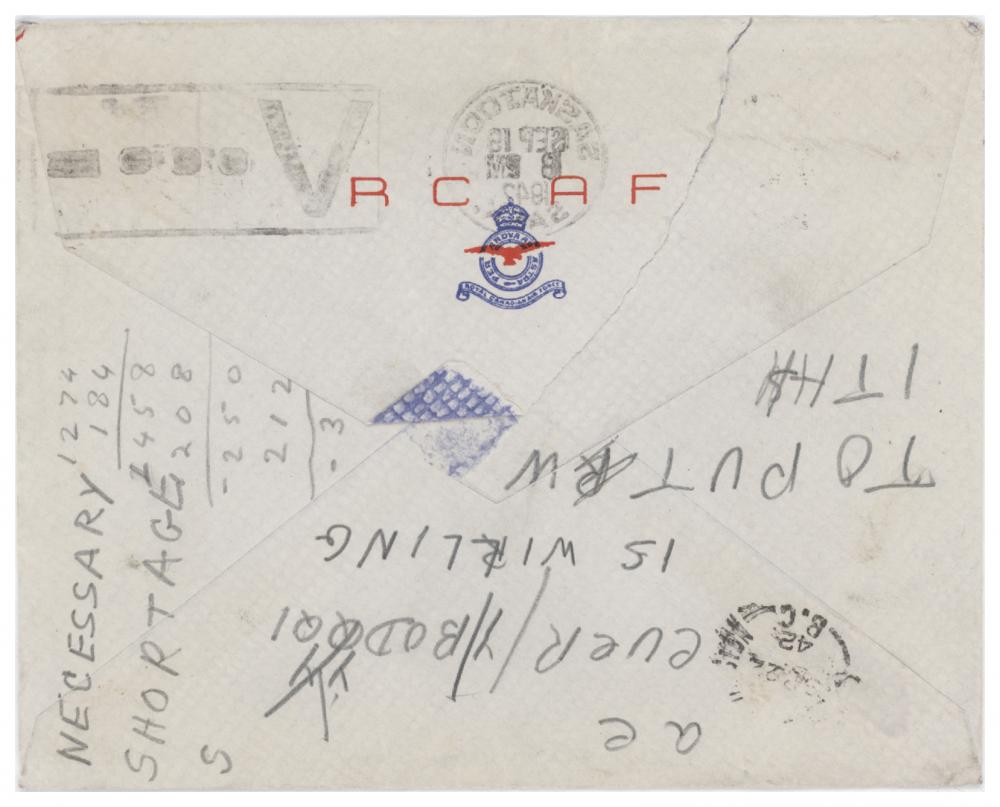 SASKATOON
SEP 18
8 PM
1942
SASK.
V
R C A F
PER ARDUA AD ASTRA
ROYAL CANADIAN AIR FORCE
NECESSARY
SHORTAGE
S
1274
184
1458
208
-250
212
-3
ae
EVERYBOD
IS WIRLING
TO PUT RW
ITH
24
42
B.C.